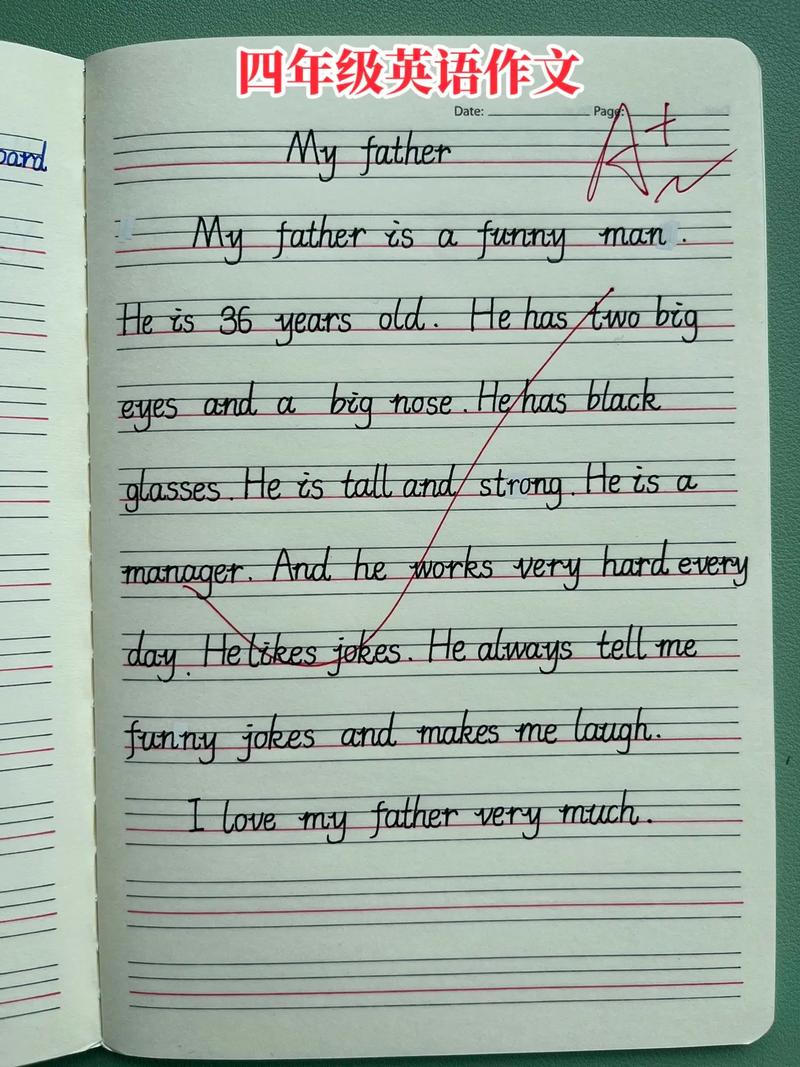 四年级英语作文
Date: Page:
A+
oard
My father
My father is a funny man.
He is 36 years old. He has two big
eyes and a big nose. He has black
glasses. He is tall and strong. He is a
manager. And he works very hard every
day. He likes jokes. He always tell me
funny jokes and makes me laugh.
I love my father very much.